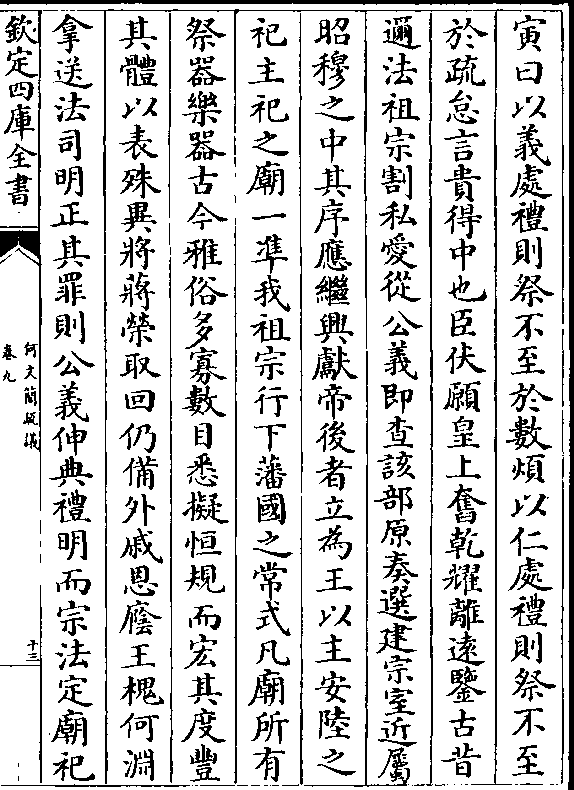 寅曰以義處禮則祭不至於數煩以仁處禮則祭不至
於疏怠言貴得中也臣伏願皇上奮乾耀離遠鑒古昔
邇法祖宗割私愛從公義即查該部原奏選建宗室近屬
昭穆之中其序應繼興獻帝後者立為王以主安陸之
祀主祀之廟一準我祖宗行下藩國之常式凡廟所有
祭器樂器古今雅俗多寡數目悉擬恒規而宏其度豐
其體以表殊異將蔣榮取回仍備外戚恩廕王槐何淵
拿送法司明正其罪則公義伸典禮明而宗法定廟祀
欽定四庫全書
何文簡疏議
卷九
十三